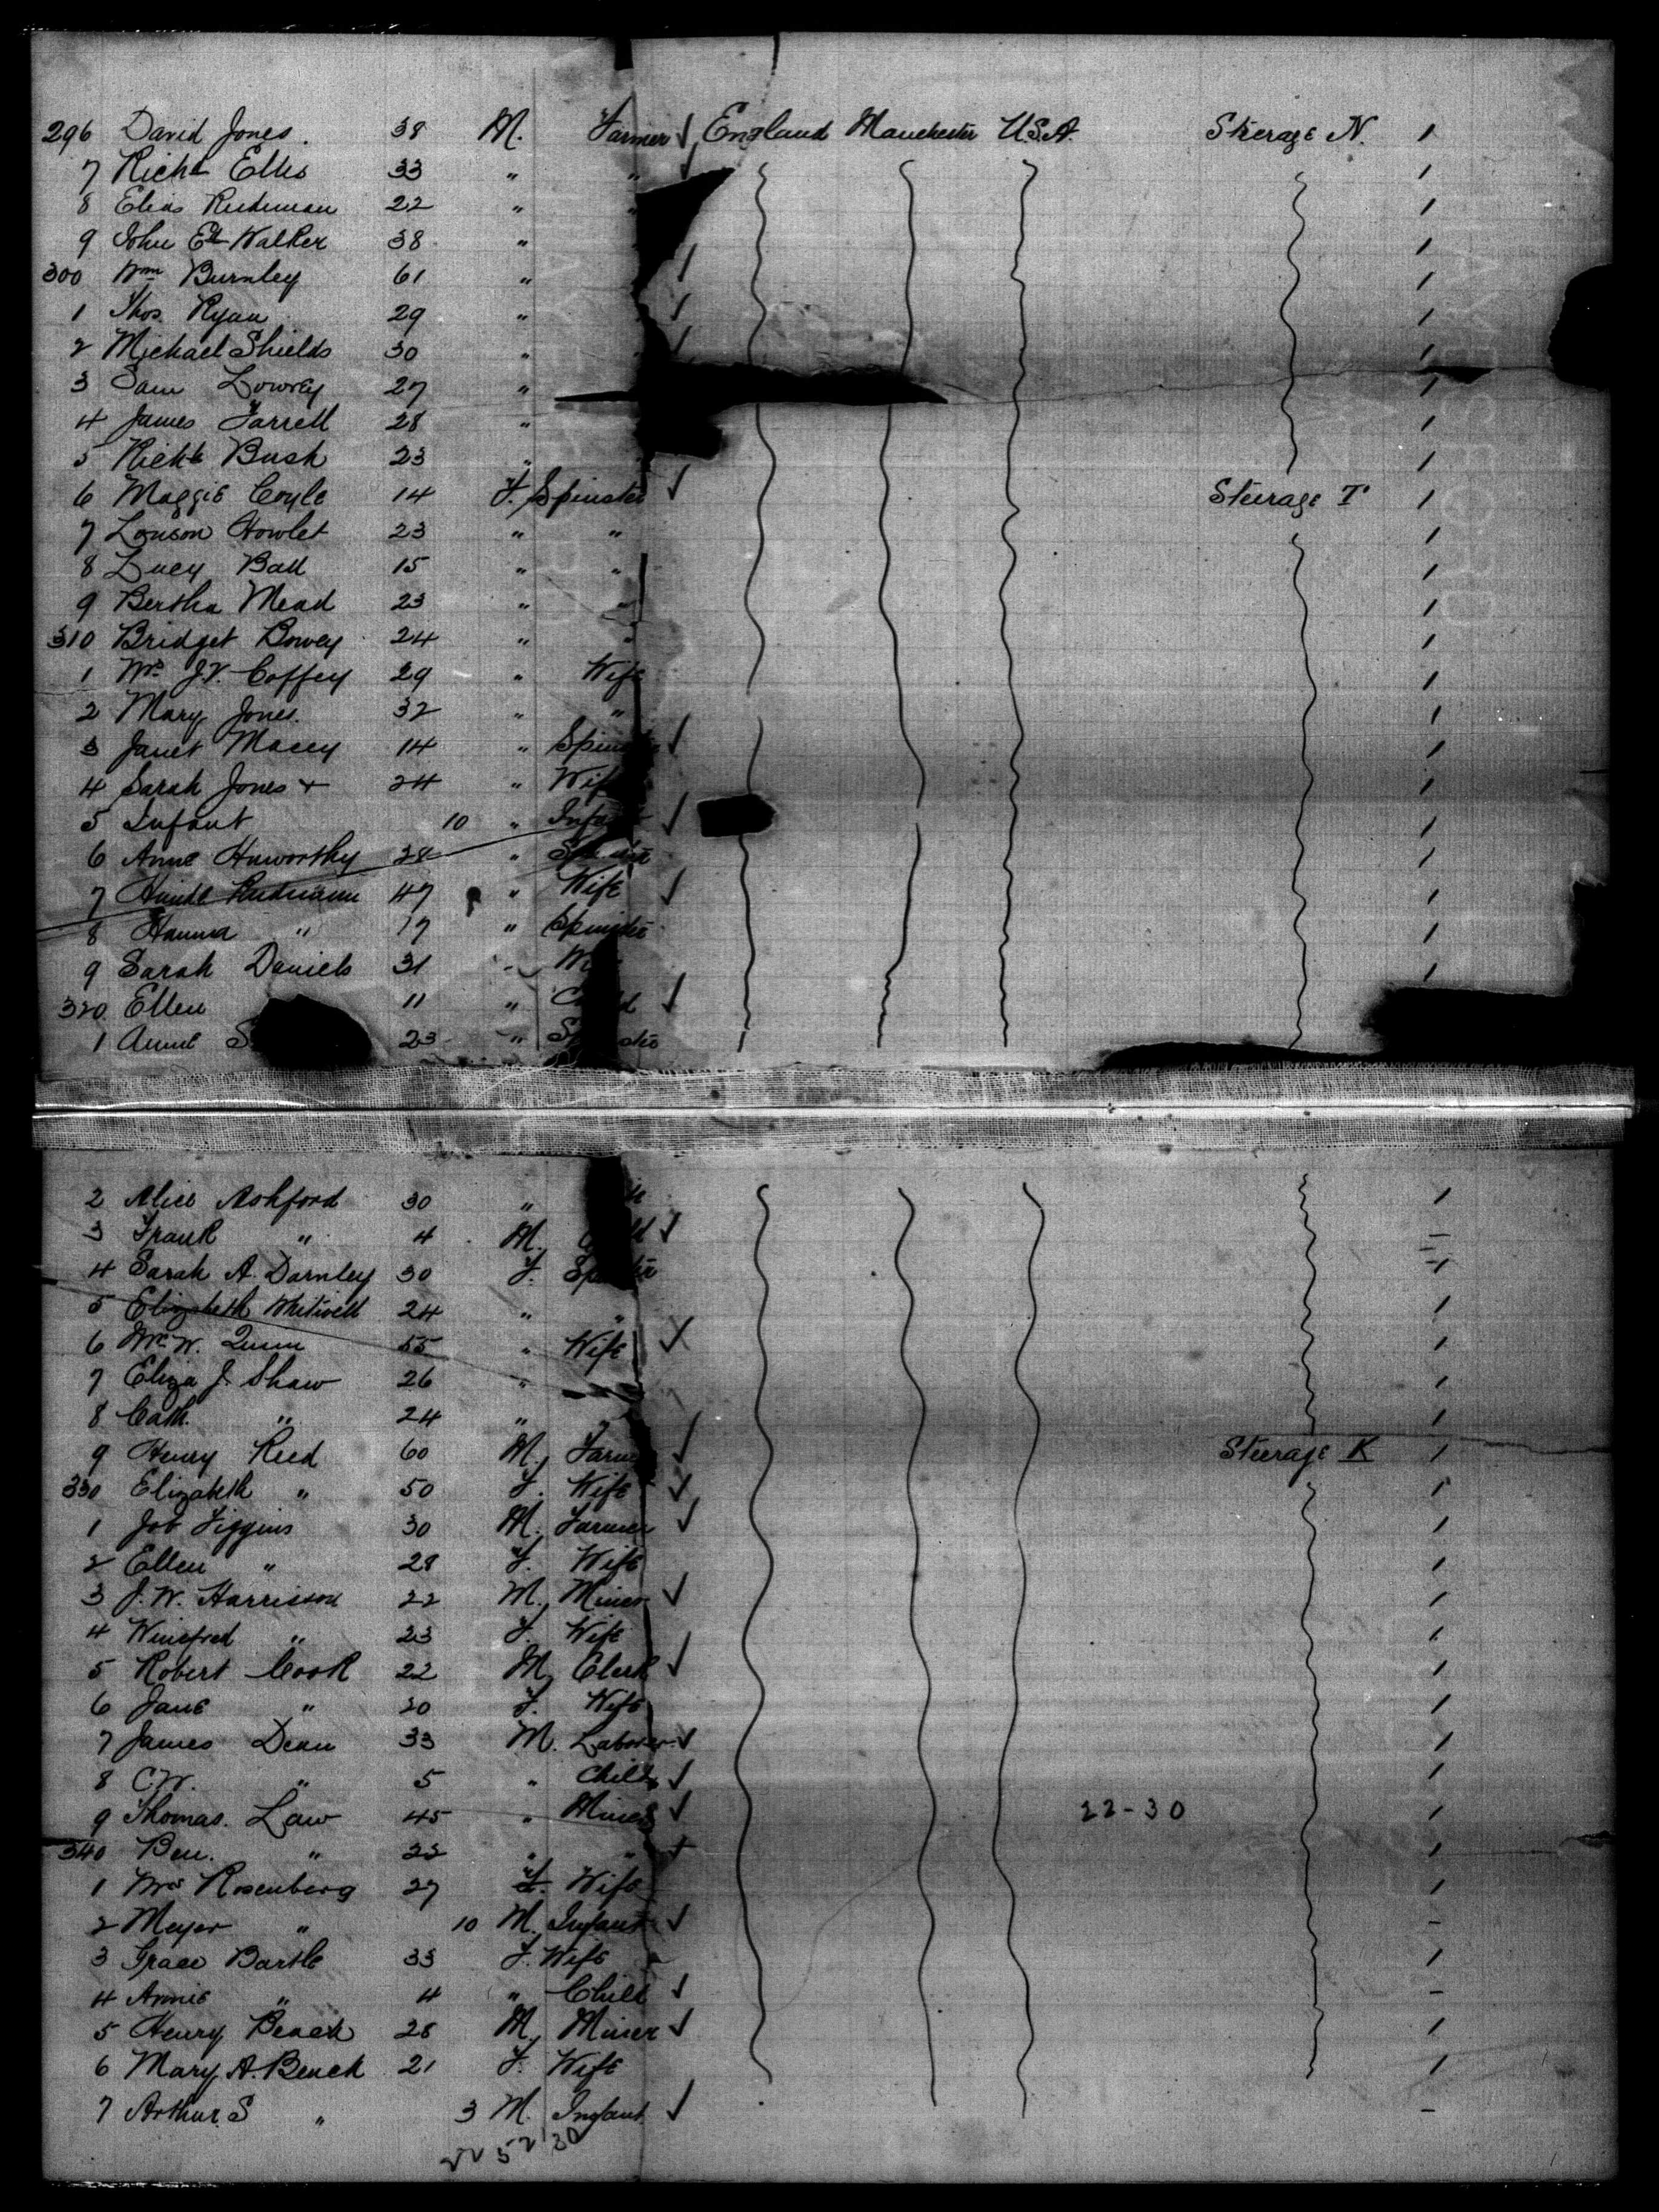 296 David Jones. 38 M. Farmer ✓ England Manchester U.S.A. Steerage N. /
7 Richd Ellis 33 " " ✓ /
8 Elias 22 " " /
9 John Ed Walker 38 " /
300 Wm Burnley 61 " ✓ /
1 Thos. Ryan 29 " ✓ /
2 Michael Shields 30 " " ✓ /
3 Sam Lowrey 27 " /
4 James Farrell 28 " /
5 Richd Bush 23 " /
6 Maggie Coyle 14 F. Spinster ✓ Steerage T /
7 Howlet 23 " " /
8 Lucy Ball 15 " " /
9 Bertha Mead 23 " " /
310 Bridget 24 " " /
1 Mrs J.V. Coffey 29 " Wife /
2 Mary Jones. 32 " " /
3 Janet Macey 14 " Spin ✓ /
4 Sarah Jones + 24 " Wife /
5 Infant 10 " Infant ✓ /
6 Anne Haworthy 28 " /
7 47 " Wife ✓ /
8 Hanna " 17 " Spinster /
9 Sarah Daniels 31 " /
320 Ellen 11 " ✓ /
1 Annie S 23 " /
2 Alice Ashford 30 " /
3 Frank " 4 M. ✓ –
4 Sarah A. Darnley 30 F. /
5 Elizabeth Whitwell 24 " " /
6 Mrs W. Quinn 55 " Wife ✓ /
7 Eliza J. Shaw 26 " /
8 Cath. " 24 " " /
9 Henry Reed 60 M. Farmer ✓ Steerage K /
330 Elizabeth " 50 F. Wife ✓ /
1 Job Figgins 30 M. Farmer ✓ /
2 Ellen " 28 F. Wife /
3 J. W. Harrison 22 M. Miner ✓ /
4 Winefred " 23 F. Wife /
5 Robert Cook 22 M. Clerk ✓ /
6 Jane " 20 F. Wife /
7 James Dean 33 M. Laborer ✓ /
8 C.W. " 5 " Child ✓ /
9 Thomas. Law 45 " Miner ✓ 22-30 /
340 Ben. " 22 " " ✓ /
1 Mrs Rosenberg 27 F. Wife /
2 Meyer " 10 M. Infant ✓ –
3 Grace Bartle 33 F. Wife /
4 Annie " 4 " Child ✓ –
5 Henry Beach 28 M. Miner ✓ /
6 Mary A. Beach 21 F. Wife /
7 Arthur. S " 3 M. Infant ✓ –
52 30